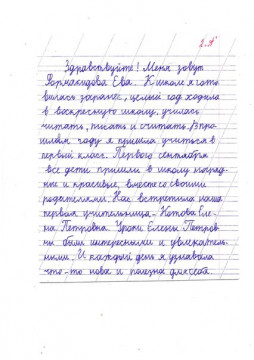 2 "А"
Здравствуйте! Меня зовут
Формакидова Ева. К школе я гото
вилась заранее, целый год ходила
в воскресную школу, училась
читать, писать и считать. В про
шлом году я пришла учиться в
первый класс. Первого сентября
все дети пришли в школу наряд
ные и красивые, вместе со своими
родителями. Нас встретила наша
первая учительница - Котова Еле
на Петровна. Уроки Елены Петров
ны были интересными и увлекатель
ными. И каждый день я узнавала
что-то новое и полезное для себя.